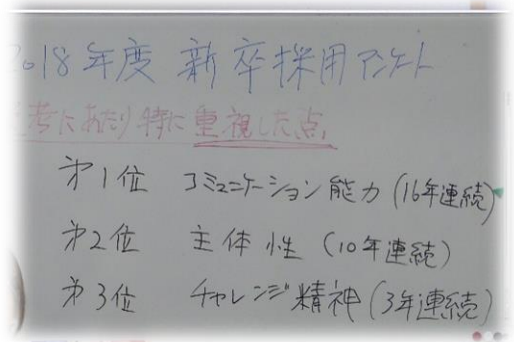 2018年度 新卒採用アンケート
選考にあたり特に重視した点。
第1位 コミュニケーション能力(16年連続)
第2位 主体性(10年連続)
第3位 チャレンジ精神(3年連続)